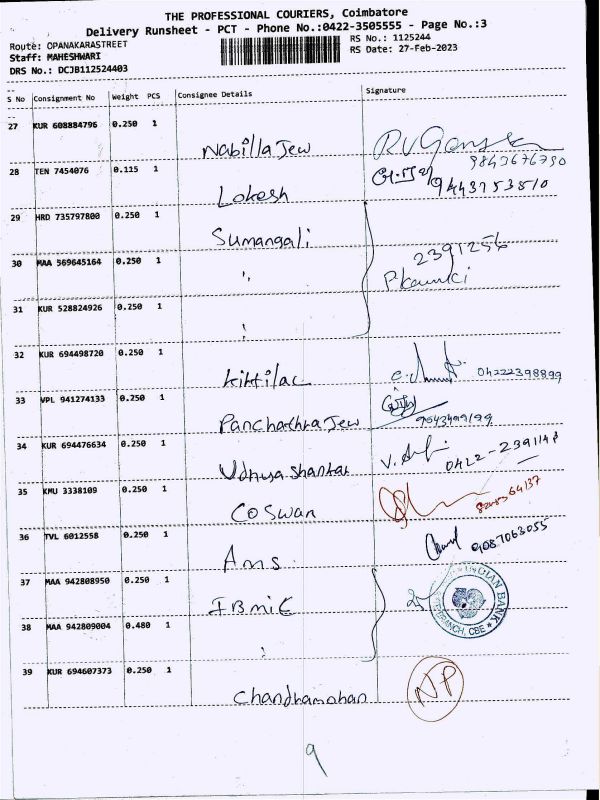 THE PROFESSIONAL COURIERS, Coimbatore
Delivery Runsheet - PCT - Phone No:0422-3505555 - Page No.:3
Route: OPANAKARASTREET
RS No.: 1125244
Staff: MAHESHWARI
RS Date: 27-Feb-2023
DRS No.: DCJB112524403
S No Consignment No Weight PCS Consignee Details Signature
27 KUR 608884796 0.250 1 Nabilla Jew
9843676790
28 TEN 7454076 0.115 1 Lokesh 9443753810
29 HRD 735797800 0.250 1 Sumangali
2391256
30 MAA 569645164 0.250 1 "
31 KUR 528824926 0.250 1 "
32 KUR 694498720 0.250 1 04222398899
33 VPL 941274133 0.250 1 Panchathra Jew
34 KUR 694476634 0.250 1 Vdhya Shankar 0422-2391148
35 KMU 3338109 0.250 1 Co Swan
36 TVL 6012558 0.250 1 Ams 9087063055
37 MAA 942808950 0.250 1
INDIAN BANK
BRANCH, CBE
38 MAA 942809004 0.480 1 "
39 KUR 694607373 0.250 1 Chandhamohan NP
9